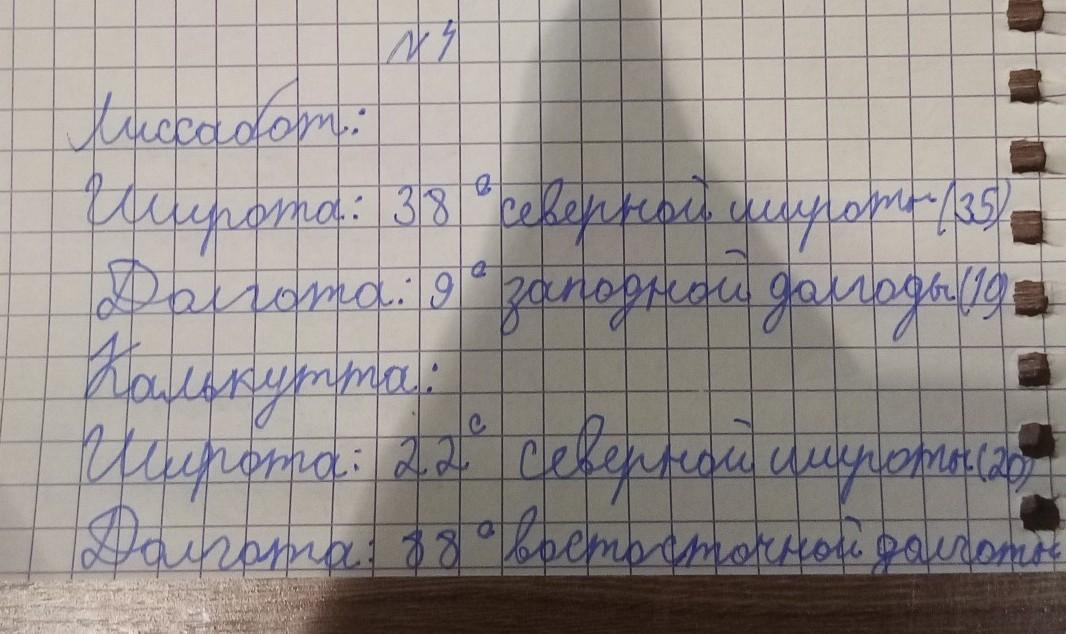 N4
Лиссабон:
Широта: 38° северной широты (35)
Долгота: 9° западной долгоды (19
Калькутта:
Широта: 22° северной широты (20)
Долгота: 88° востосточной долготы